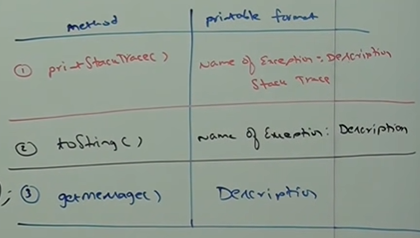 method printable format
① printStackTrace() Name of Exception: Description
Stack Trace
② toString() Name of Exception: Description
); ③ getmessage() Description